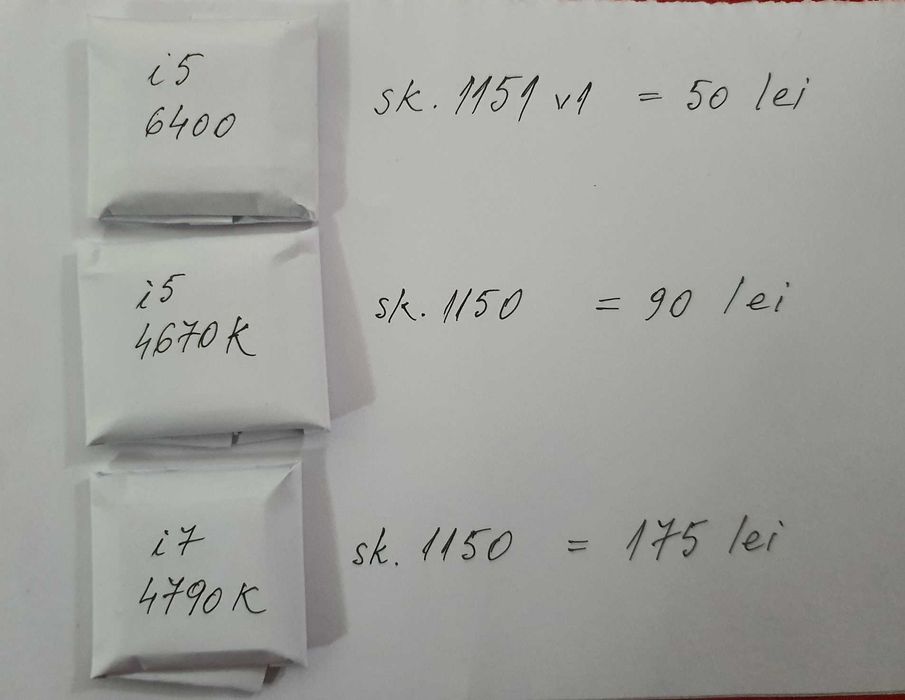 i5
6400
sk. 1151 v1 = 50 lei
i5
4670K
sk. 1150 = 90 lei
i7
4790K
sk. 1150 = 175 lei